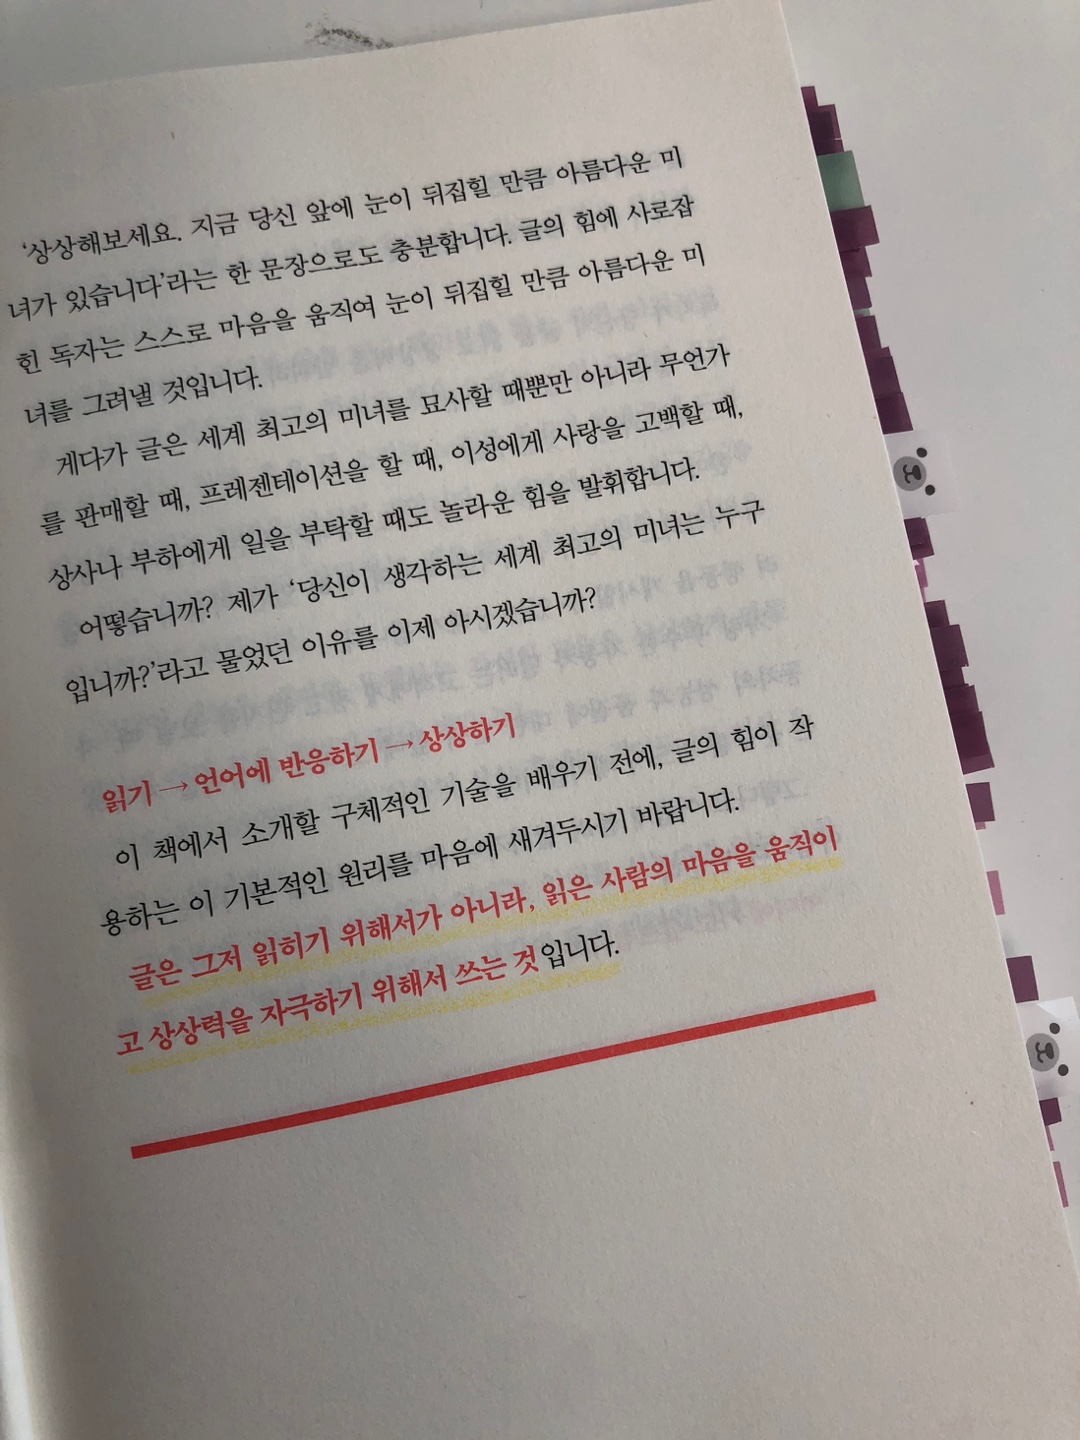 ‘상상해보세요. 지금 당신 앞에 눈이 뒤집힐 만큼 아름다운 미
녀가 있습니다’라는 한 문장으로도 충분합니다. 글의 힘에 사로잡
힌 독자는 스스로 마음을 움직여 눈이 뒤집힐 만큼 아름다운 미
녀를 그려낼 것입니다.
게다가 글은 세계 최고의 미녀를 묘사할 때뿐만 아니라 무언가
를 판매할 때, 프레젠테이션을 할 때, 이성에게 사랑을 고백할 때,
상사나 부하에게 일을 부탁할 때도 놀라운 힘을 발휘합니다.
어떻습니까? 제가 ‘당신이 생각하는 세계 최고의 미녀는 누구
입니까?’라고 물었던 이유를 이제 아시겠습니까?
읽기 → 언어에 반응하기 → 상상하기
이 책에서 소개할 구체적인 기술을 배우기 전에, 글의 힘이 작
용하는 이 기본적인 원리를 마음에 새겨두시기 바랍니다.
글은 그저 읽히기 위해서가 아니라, 읽은 사람의 마음을 움직이
고 상상력을 자극하기 위해서 쓰는 것입니다.